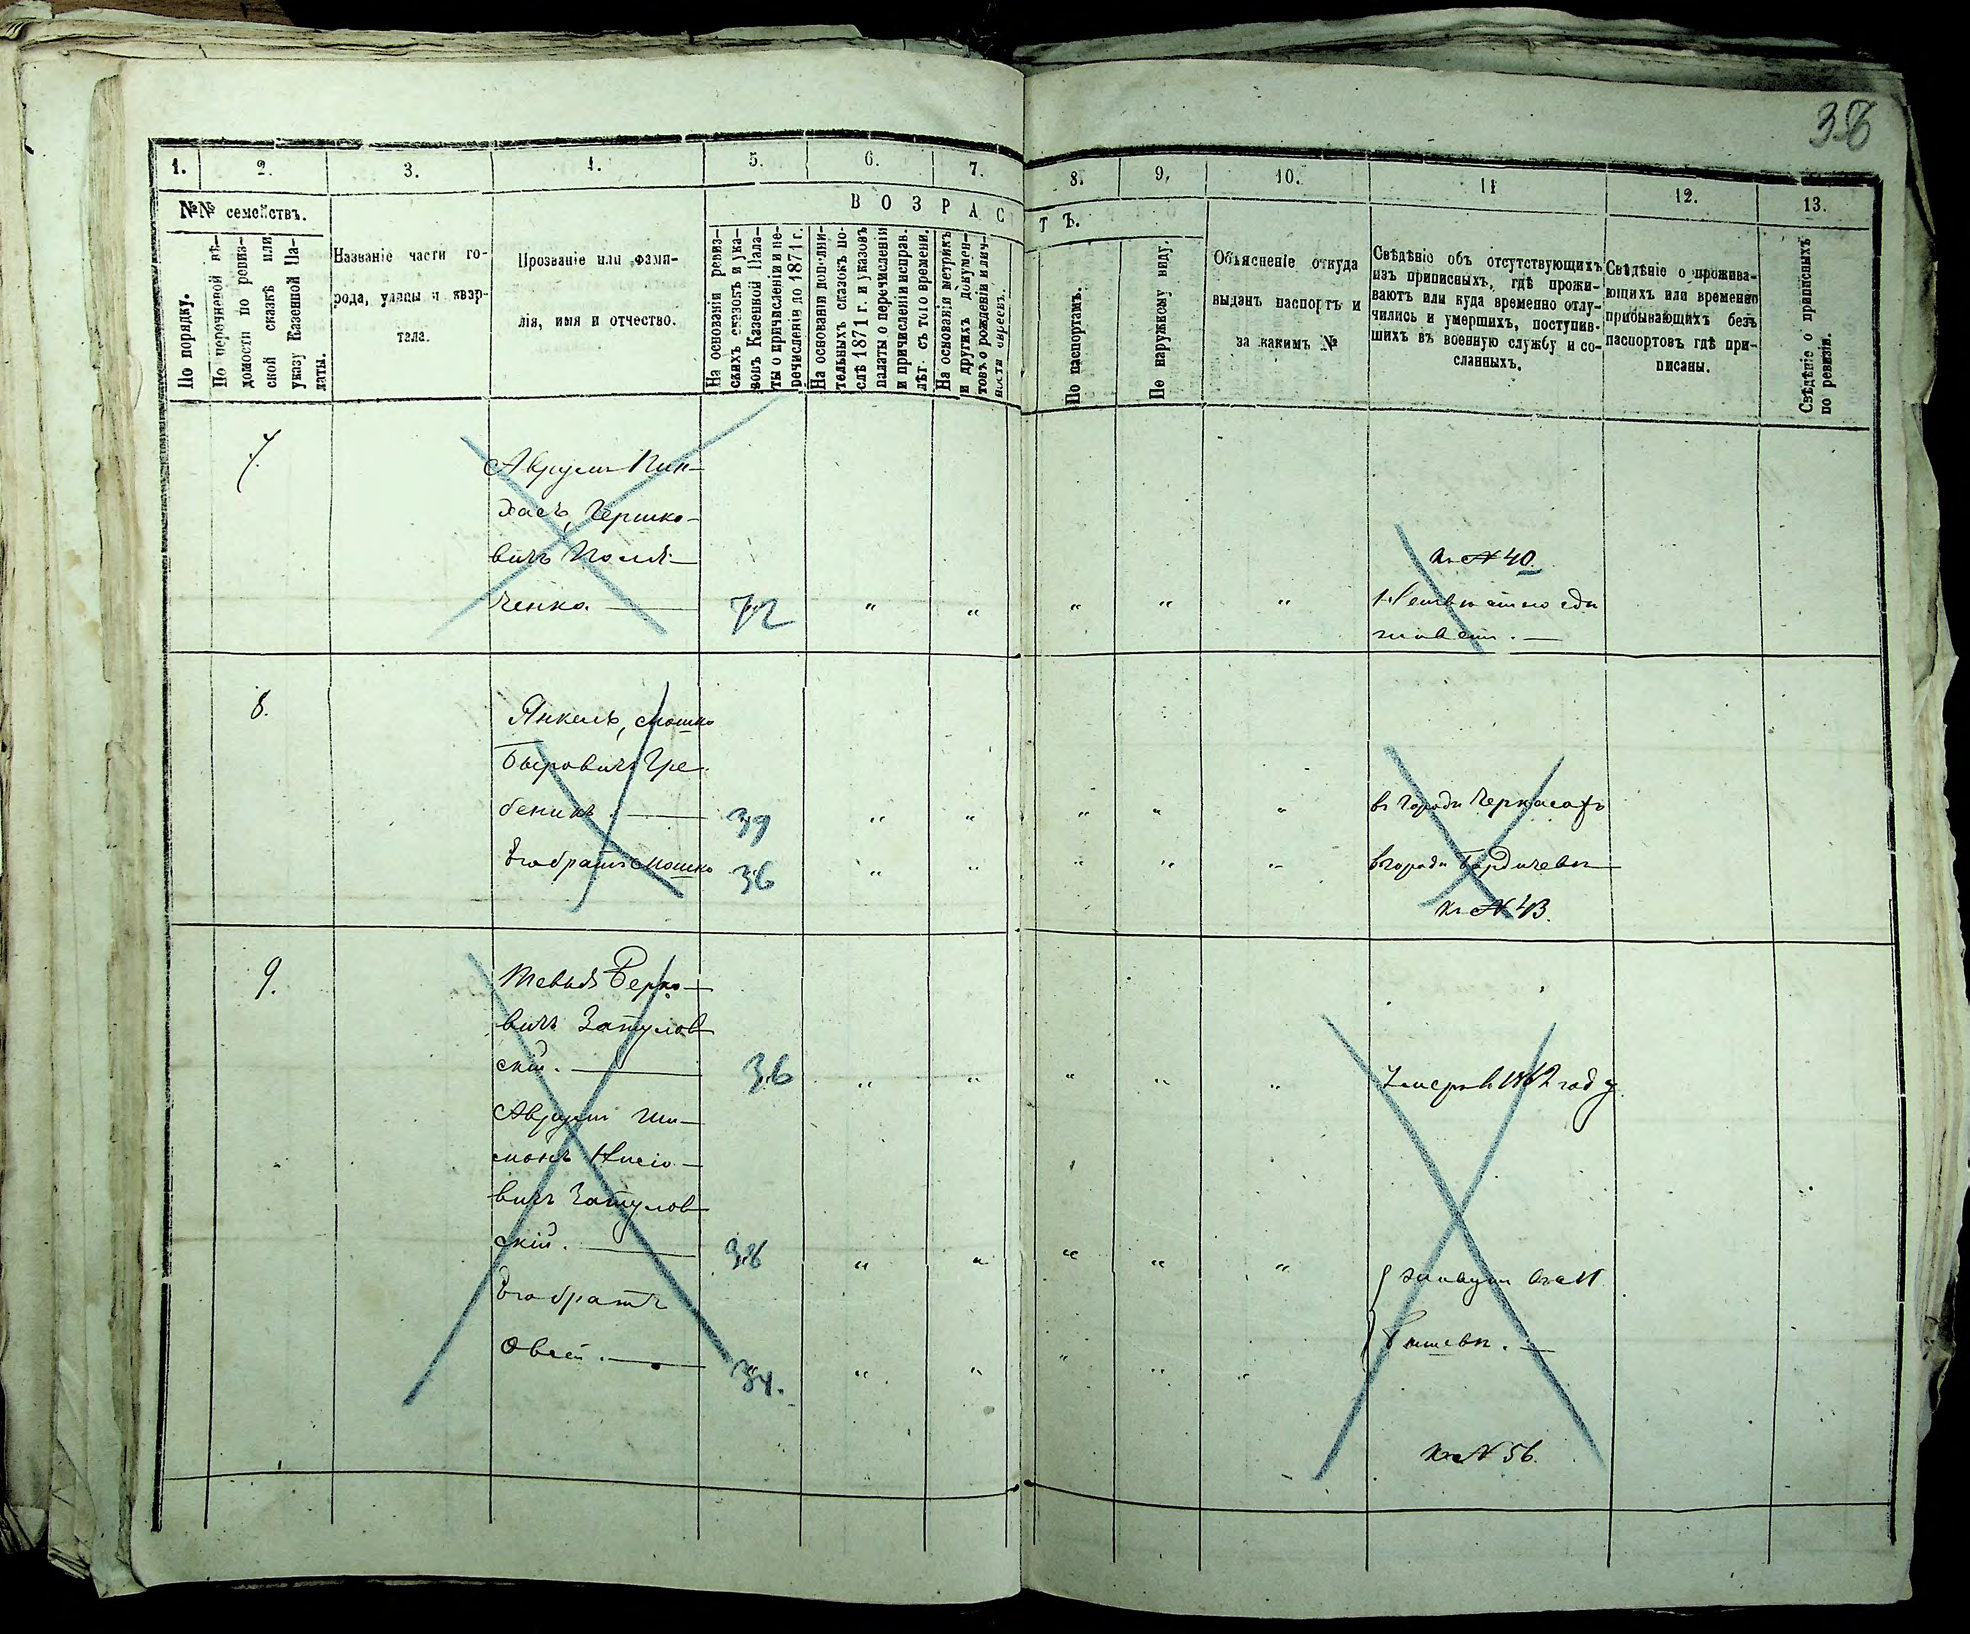 38
1. 2. 3. 4. 5. 6. 7. 8. 9. 10. 11 12. 13.
№№ семействъ.
В О З Р А С Т Ъ.
По порядку.
По перечневой вѣ-
домости по ревиз-
ской сказкѣ или
указу Казенной Па-
латы.
Названіе части го-
рода, улицы и квар-
тала.
Прозваніе или фами-
лія, имя и отчество.
На основаніи ревиз-
скихъ сказокъ и ука-
зовъ Казенной Пала-
ты о причисленіи и пе-
речисленіи до 1871 г.
На основаніи дополни-
тельныхъ сказокъ по-
слѣ 1871 г. и указовъ
палаты о перечисленіи
и причисленіи исправ.
лѣт. съ того времени.
На основаніи метрикъ
и другихъ докумен-
товъ о рожденіи и лич-
ности евреевъ.
По паспортамъ.
По наружному виду.
Объясненіе откуда
выданъ паспортъ и
за какимъ №
Свѣдѣніе объ отсутствующихъ
изъ приписныхъ, гдѣ прожи-
ваютъ или куда временно отлу-
чились и умершихъ, поступив-
шихъ въ военную службу и со-
сланныхъ.
Свѣдѣніе о прожива-
ющихъ или временно
прибывающихъ безъ
паспортовъ гдѣ при-
писаны.
Свѣдѣніе о приписныхъ
по ревизіи.
7.
Аврумъ Пин-
хасъ, Гершко-
вичъ Поля-
ченко. 72 " " " " "
№ 40.
8.
Янкель, Мошко
Беровичъ Гре
беникъ. 39 " " " " " въ городи Черкасахъ
Его братъ Мошко 36 " " " " " въ городи Бердичевы
№ 43.
9.
Тевья Берко-
вичъ Затулов
скій. 36 " " " " " Умеръ въ 1862 году
Аврумъ Ши-
монъ Нисіо-
вичъ Затулов
скій. 38 " " " " "
Его братъ
Овсей. 34. " " " " "
№ 56.